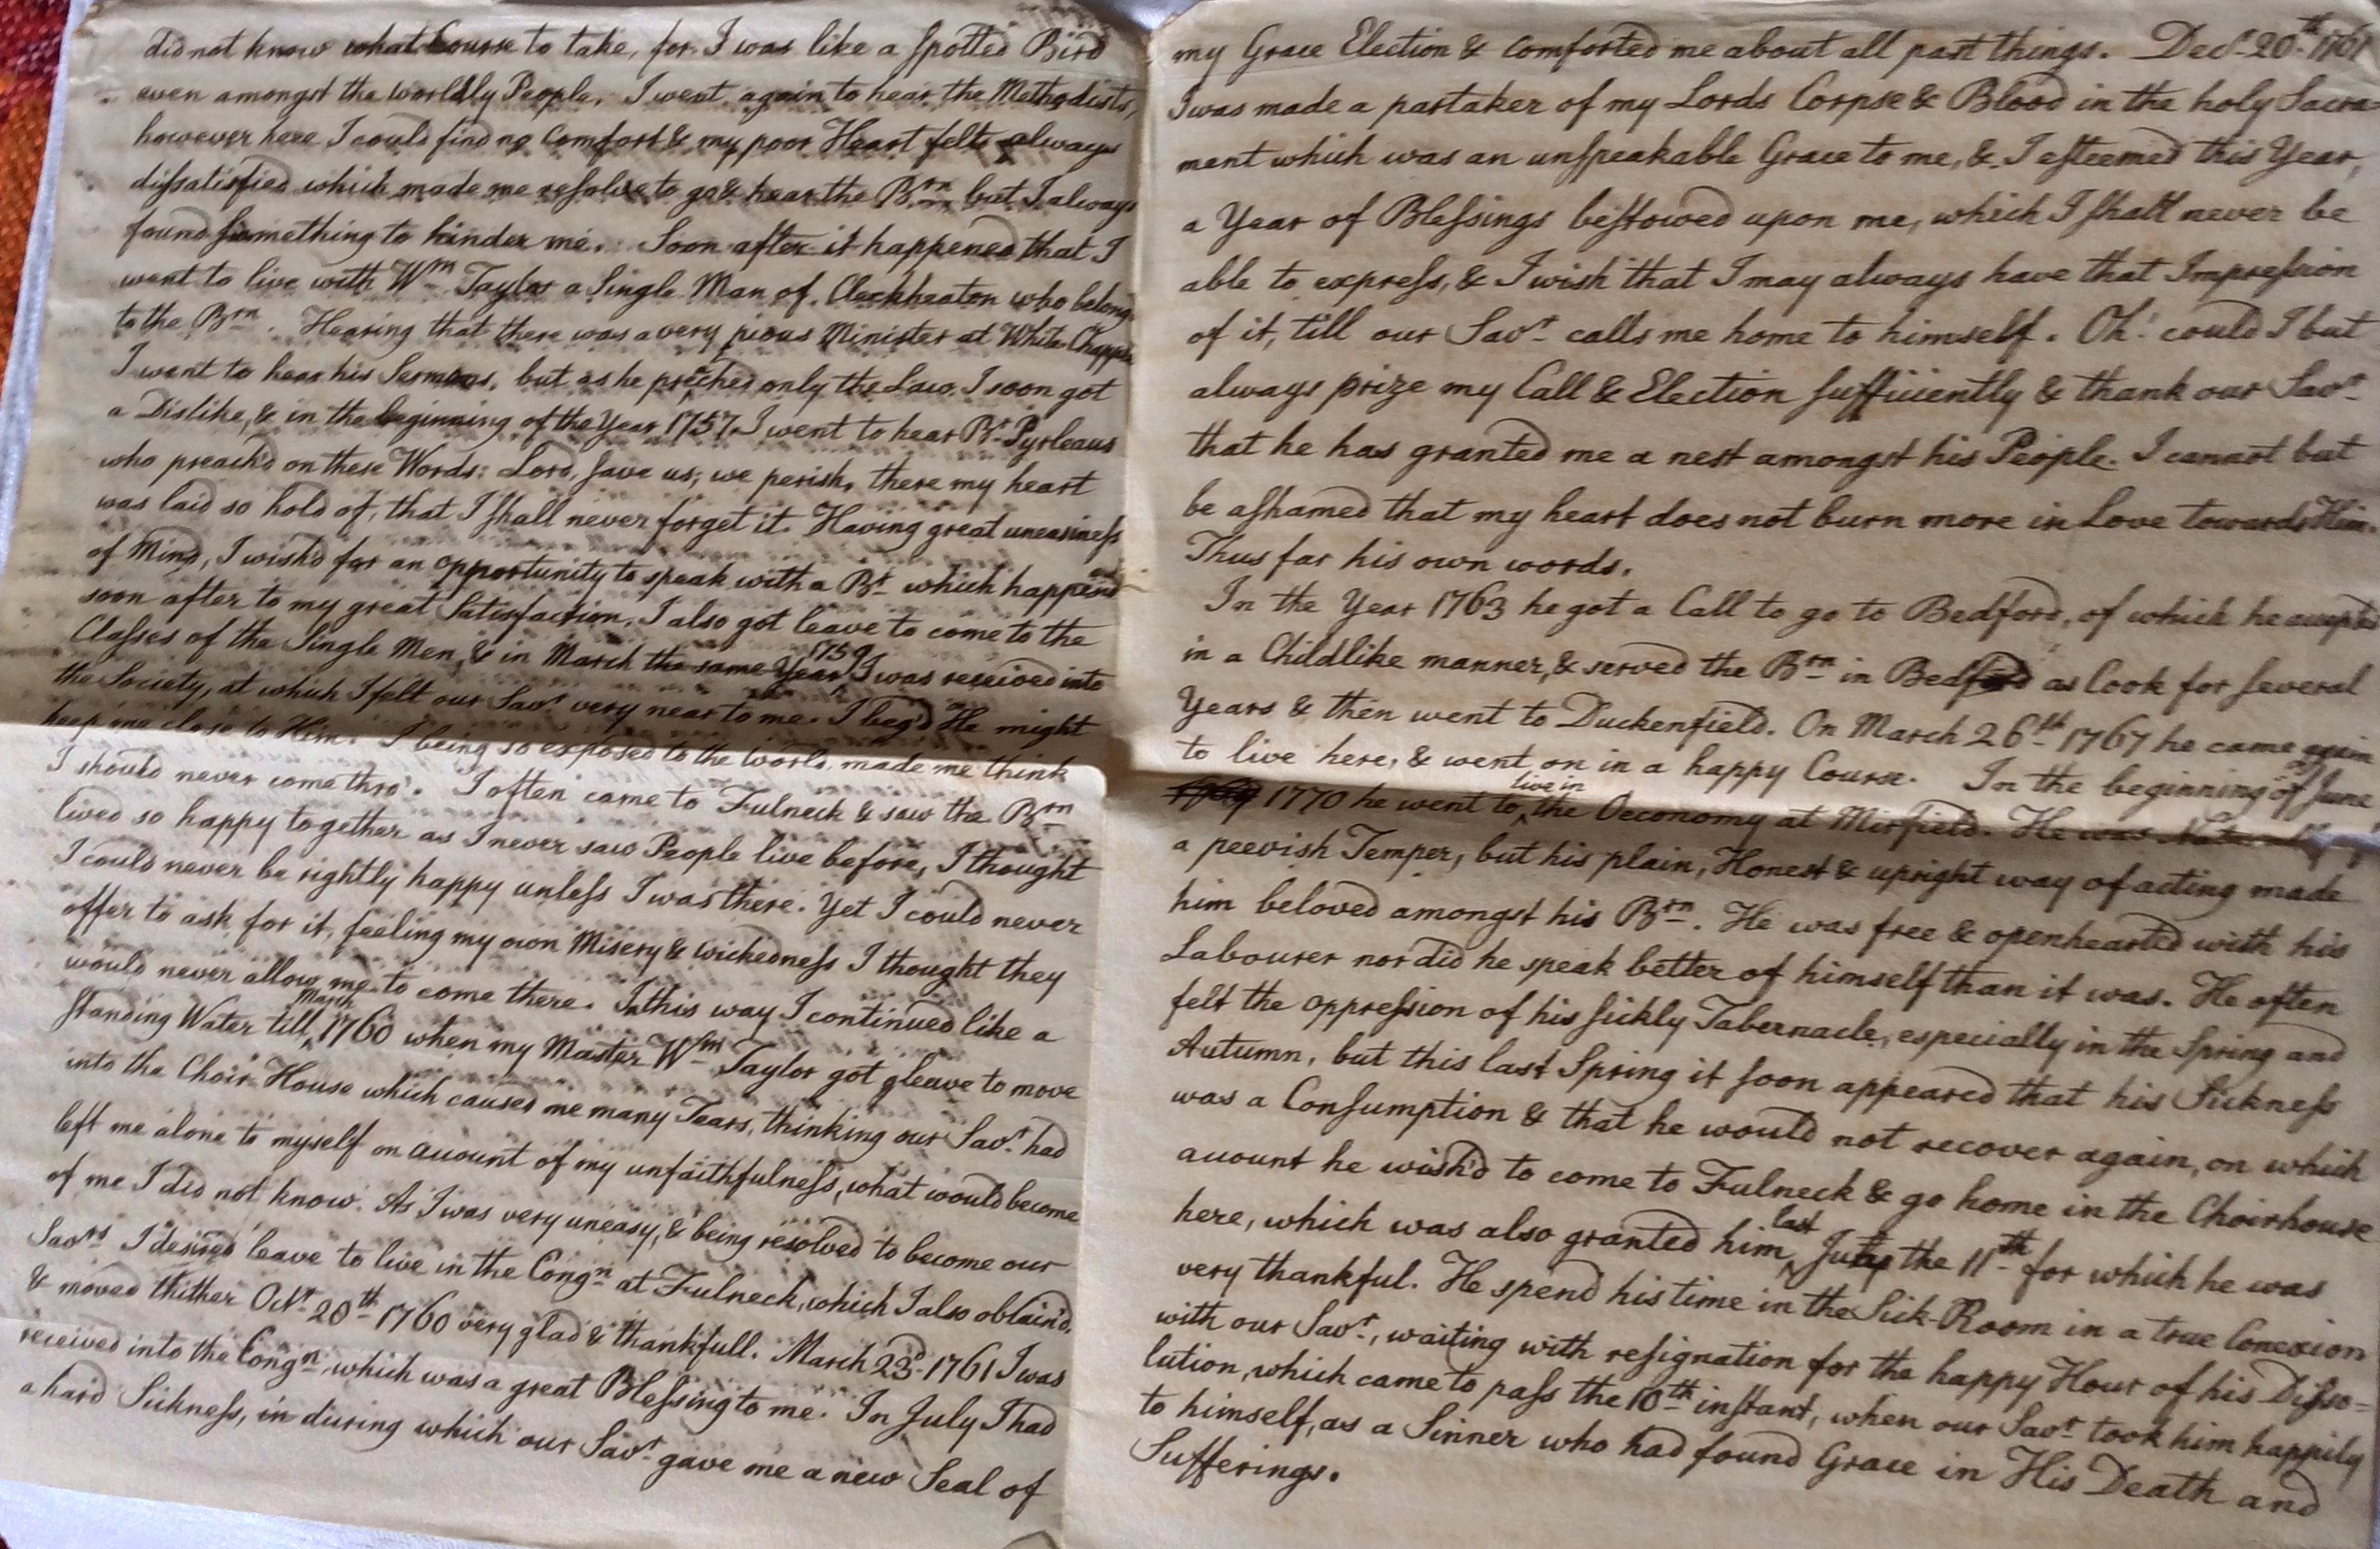 did not know what Course to take, for I was like a spotted Bird
even amongst the worldly People. I went again to hear the Methodists,
however here I could find no Comfort & my poor Heart felt always
dissatisfied which made me resolve to go & hear the Brn but I always
found something to hinder me. Soon after it happened that I
went to live with Wm Taylor a Single Man of Cleckheaton who belong
to the Brn. Hearing that there was a very pious Minister at White Chappel
I went to hear his Sermons, but as he preached only the Law I soon got
a Dislike, & in the beginning of the Year 1757 I went to hear Br Pyrleaus
who preach'd on these Words: Lord, save us, we perish, there my heart
was laid so hold of, that I shall never forget it. Having great uneasiness
of Mind, I wish'd for an opportunity to speak with a Br which happened
soon after to my great Satisfaction. I also got leave to come to the
Classes of the Single Men, & in March the same Year 1759 I was received into
the Society, at which I felt our Savr very near to me. I beg'd He might
keep me close to Him. I being so exposed to the World, made me think
I should never come thro'. I often came to Fulneck & saw the Brn
lived so happy together as I never saw People live before, I thought
I could never be rightly happy unless I was there. Yet I could never
offer to ask for it, feeling my own Misery & wickedness I thought they
would never allow me to come there. In this way I continued like a
standing Water till March 1760 when my Master Wm Taylor got gleave to move
into the Choir House which caused me many Tears, thinking our Savr had
left me alone to myself on account of my unfaithfulness, what would become
of me I did not know. As I was very uneasy, & being resolved to become our
Savrs I desired leave to live in the Congn at Fulneck, which I also obtain'd,
& moved thither Octr 20th 1760 very glad & thankfull. March 23d 1761 I was
received into the Congn, which was a great Blessing to me. In July I had
a hard Sickness, in during which our Savr gave me a new Seal of
my Grace Election & comforted me about all past things. Decr 20th 1761
I was made a partaker of my Lords Corpse & Blood in the holy Sacra
ment which was an unspeakable Grace to me, & I esteemed this Year,
a Year of Blessings bestowed upon me, which I shall never be
able to express, & I wish that I may always have that Impression
of it, till our Savr calls me home to himself. Oh! could I but
always prize my Call & Election sufficiently & thank our Savr
that he has granted me a nest amongst his People. I cannot but
be ashamed that my heart does not burn more in Love towards Him.
Thus far his own words.
In the Year 1763 he got a Call to go to Bedford, of which he accepted
in a Childlike manner, & served the Brn in Bedford as Cook for several
Years & then went to Duckenfield. On March 26th 1767 he came again
to live here, & went on in a happy Course. In the beginning of June
1770 he went to live in the Oeconomy at Mirfield. He was
a peevish Temper, but his plain, Honest & upright way of acting made
him beloved amongst his Brn. He was free & openhearted with his
Labourer nor did he speak better of himself than it was. He often
felt the oppression of his sickly Tabernacle, especially in the Spring and
Autumn, but this last Spring it soon appeared that his Sickness
was a Consumption & that he would not recover again, on which
account he wish'd to come to Fulneck & go home in the Choirhouse
here, which was also granted him last the 11th for which he was
very thankful. He spend his time in the Sick-Room in a true Conexion
with our Savr, waiting with resignation for the happy Hour of his Disso=
lution, which came to pass the 10th instant, when our Savr took him happily
to himself, as a Sinner who had found Grace in His Death and
Sufferings.